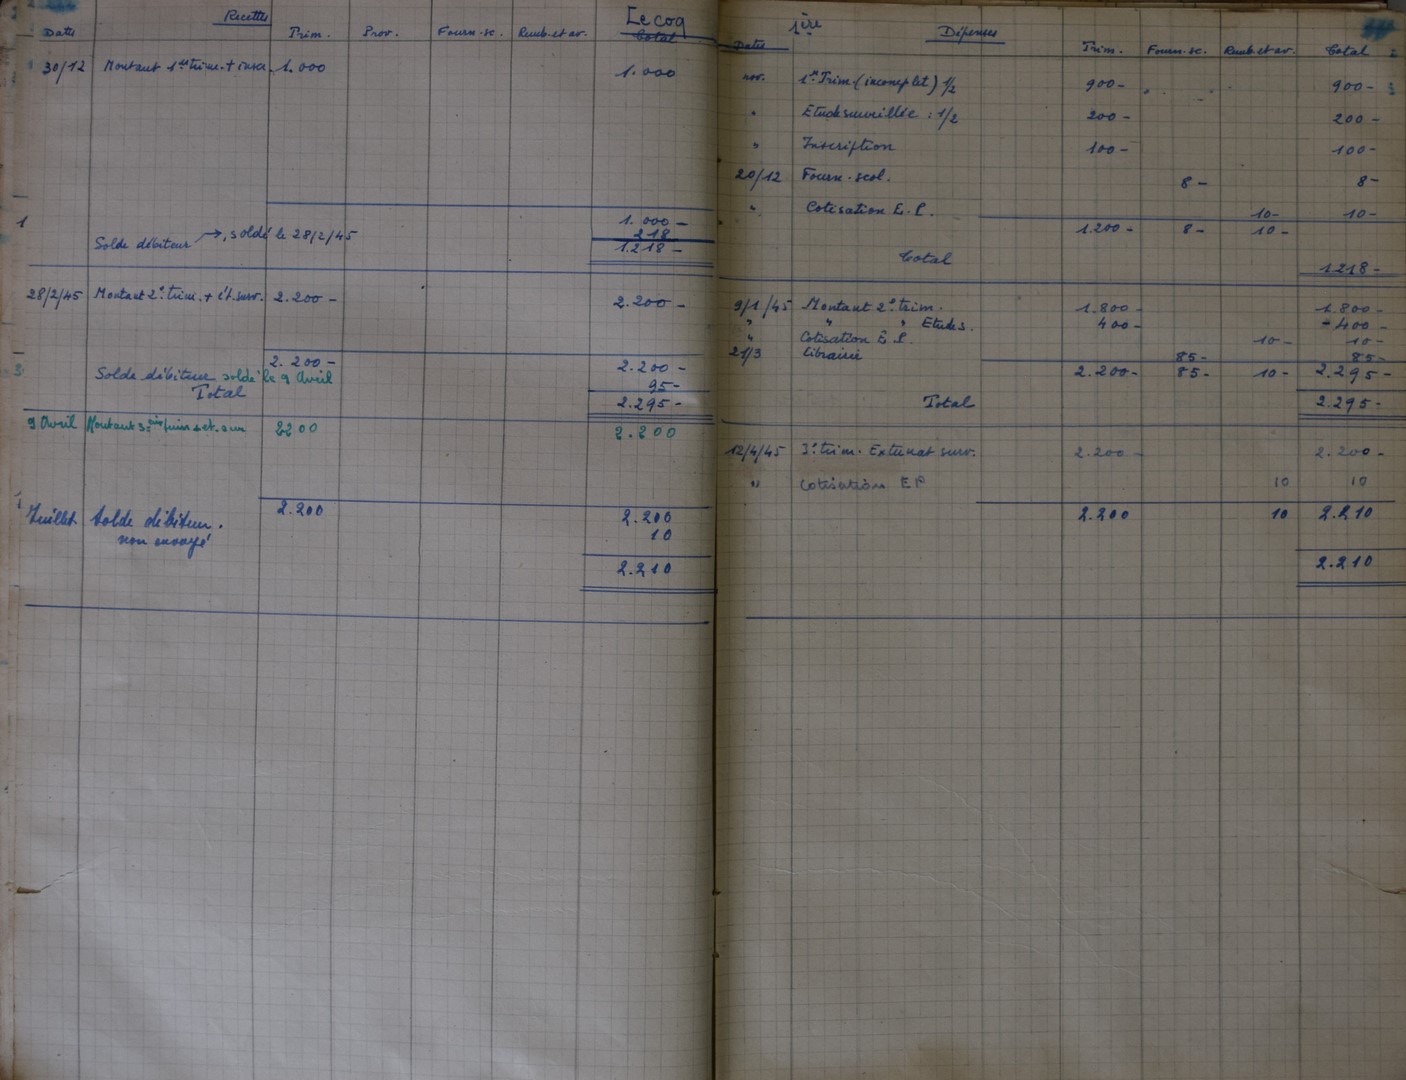 Recettes
Lecoq
Dates Trim. Prov. Fourn. sc. Remb. et av. Total
30/12 Montant 1er trim. + inscr. 1.000 1.000
1.000 -
218
Solde débiteur → soldé le 28/2/45
1.218 -
28/2/45 Montant 2e trim. + ét. surv. 2.200 - 2.200 -
2.200 - 2.200 -
Solde débiteur soldé le 9 Avril 95 -
Total 2.295 -
9 Avril Montant 2200 2.200
2.200 2.200
Juillet Solde débiteur. 10
non envoyé
2.210
1ère
Dépenses
Dates Trim. Fourn. sc. Remb. et av. Total
nov. 1er Trim (incomplet) 1/2 900 - 900 -
" Etude surveillée : 1/2 200 - 200 -
" Inscription 100 - 100 -
20/12 Fourn. scol. 8 - 8 -
" Cotisation E.P. 10 - 10 -
1.200 - 8 - 10 -
Total 1218 -
9/1/45 Montant 2e trim. 1.800 - 1.800 -
" " " Etudes. 400 - 400 -
" Cotisation E P. 10 - 10 -
21/3 librairie 85 - 85 -
2.200 - 85 - 10 - 2.295 -
Total 2.295 -
12/4/45 3e trim. Externat surv. 2.200 - 2.200 -
" Cotisation EP 10 10
2.200 10 2.210
2.210